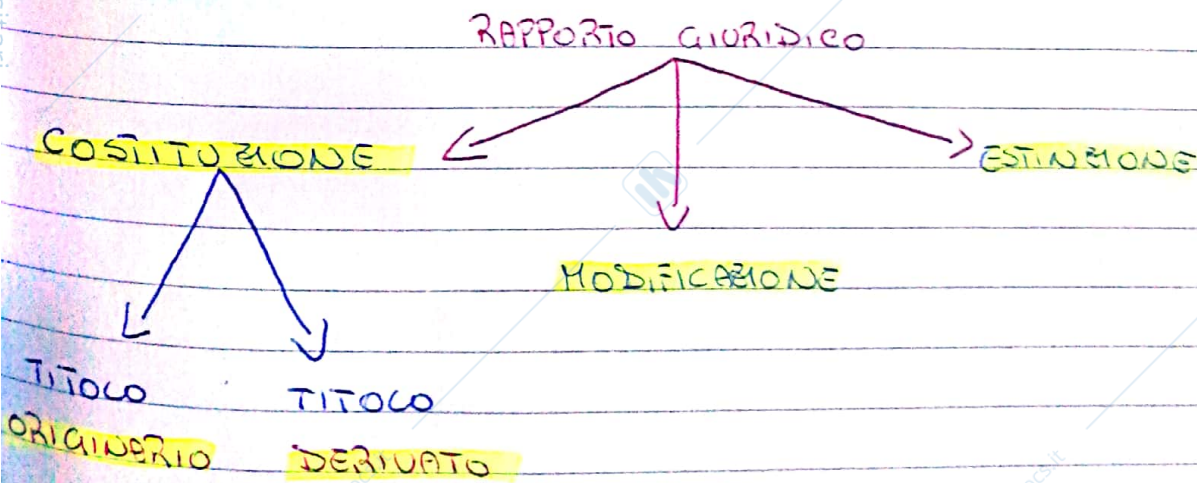 RAPPORTO GIURIDICO
COSTITUZIONE
ESTINZIONE
MODIFICAZIONE
TITOLO
ORIGINARIO
TITOLO
DERIVATO